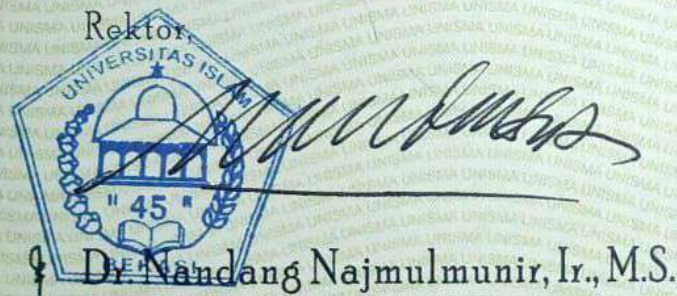 Rektor,
UNIVERSITAS ISLAM
" 45 "
BEKASI
Dr. Nandang Najmulmunir, Ir., M.S.
UNISMA UNISMA UNISMA UNISMA